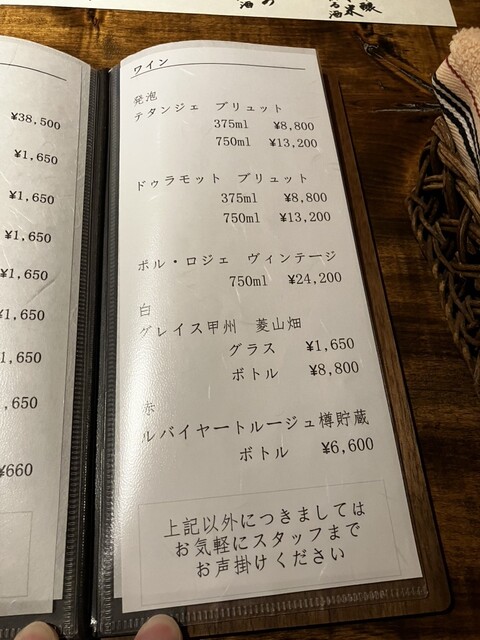 の
酒
醸
る 果
酒
¥38,500
¥1,650
¥1,650
¥1,650
¥1,650
¥1,650
¥1,650
,650
¥660
ワイン
発泡
テタンジェ ブリュット
375ml ¥8,800
750ml ¥13,200
ドゥラモット ブリュット
375ml ¥8,800
750ml ¥13,200
ポル・ロジェ ヴィンテージ
750ml ¥24,200
白
グレイス甲州 菱山畑
グラス ¥1,650
ボトル ¥8,800
赤
ルバイヤートルージュ樽貯蔵
ボトル ¥6,600
上記以外につきましては
お気軽にスタッフまで
お声掛けください